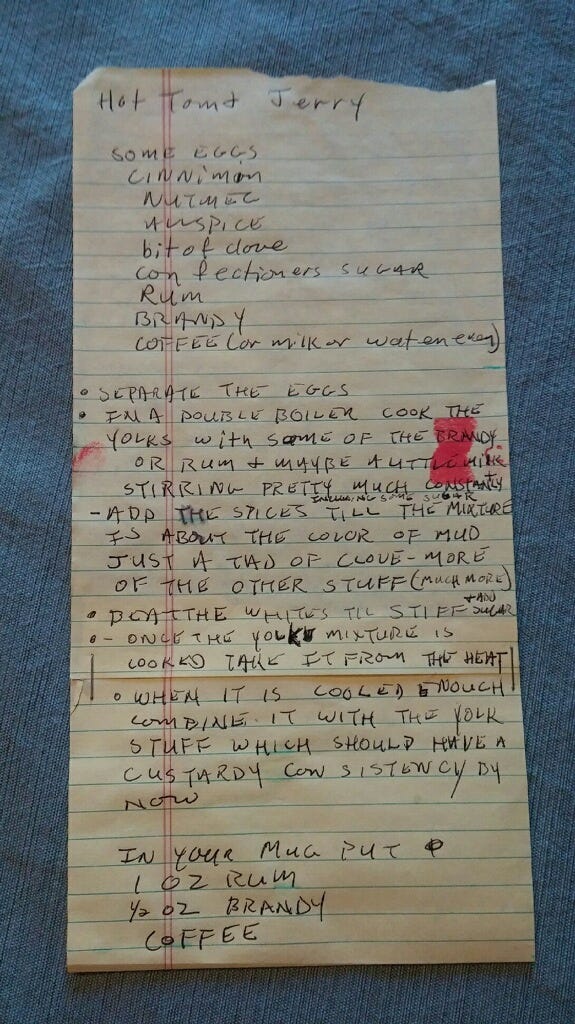 Hot Tom & Jerry
SOME EGGS
CINNimon
NUTMEG
AllSPICE
bit of clove
confectioners SUGAR
Rum
BRANDY
COFFEE (or milk or water even)
• SEPARATE THE EGGS
• IN A DOUBLE BOILER COOK THE
YOLKS with some OF THE BRANDY
OR RUM & MAYBE A LITTLE MILK
STIRRING PRETTY MUCH CONSTANTLY
INCLUDING SOME SUGAR
- ADD THE SPICES TILL THE MIXTURE
IS ABOUT THE COLOR OF MUD
JUST A TAD OF CLOVE - MORE
OF THE OTHER STUFF (MUCH MORE)
• BEAT THE WHITES TIL STIFF + ADD SUGAR
• - ONCE THE YOLK MIXTURE IS
COOKED TAKE IT FROM THE HEAT
• WHEN IT IS COOLED ENOUGH
COMBINE IT WITH THE YOLK
STUFF WHICH SHOULD HAVE A
CUSTARDY CONSISTENCY BY
NOW
IN YOUR MUG PUT
1 OZ RUM
1/2 OZ BRANDY
COFFEE